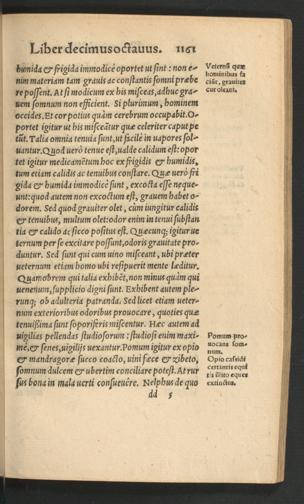 Liber decimusoctauus. 1161
humida & frigida immodicè oportet ut sint: non e-
nim materiam tam grauis ac constantis somni præbe
re possent. At si modicum ex his misceas, adhuc gra-
uem somnum non efficient. Si plurimum, hominem
occides. Et cor potius quàm cerebrum occupabit. O-
portet igitur ut his misceātur quæ celeriter caput pe
tūt. Talia omnia tenuia sunt, ut facilè in uapores sol-
uantur. Quod uerò tenue est, ualde calidum est: opor
tet igitur medicamētum hoc ex frigidis & humidis,
tum etiam calidis ac tenuibus constare. Quæ uerò fri
gida & humida immodicè sunt, excocta esse neque-
unt: quod autem non excoctum est, grauem habet o-
dorem. Sed quod grauiter olet, cùm iungitur calidis
& tenuibus, multum olet: odor enim in tenui substan
tia & calido ac sicco positus est. Quæcunq; igitur ue
ternum per se excitare possunt, odoris grauitate pro-
duntur. Sed sunt qui cum uino misceant, ubi præter
ueternum etiam homo ubi resipuerit mente læditur.
Quamobrem qui talia exhibēt, non minus quàm qui
uenenum, supplicio digni sunt. Exhibent autem ple-
runq; ob adulteria patranda. Sed licet etiam ueter-
num exterioribus odoribus prouocare, quoties quæ
tenuissima sunt soporiferis miscentur. Hæc autem ad
uigilias pellendas studiosorum: studiosi enim maxi-
mè, & senes, uigilijs uexantur. Pomum igitur ex opio
& mandragoræ succo coacto, uini fæce & zibeto,
somnum dulcem & ubertim conciliare potest. At rur
sus bona in mala uerti consueuêre. Nelphus de quo
dd 5
Veternū quæ
hominibus fa
ciāt, grauiter
cur oleant.
Pomum pro-
uocans som-
num.
Opio cassidi
certantis equi
tis illito eques
extinctus.